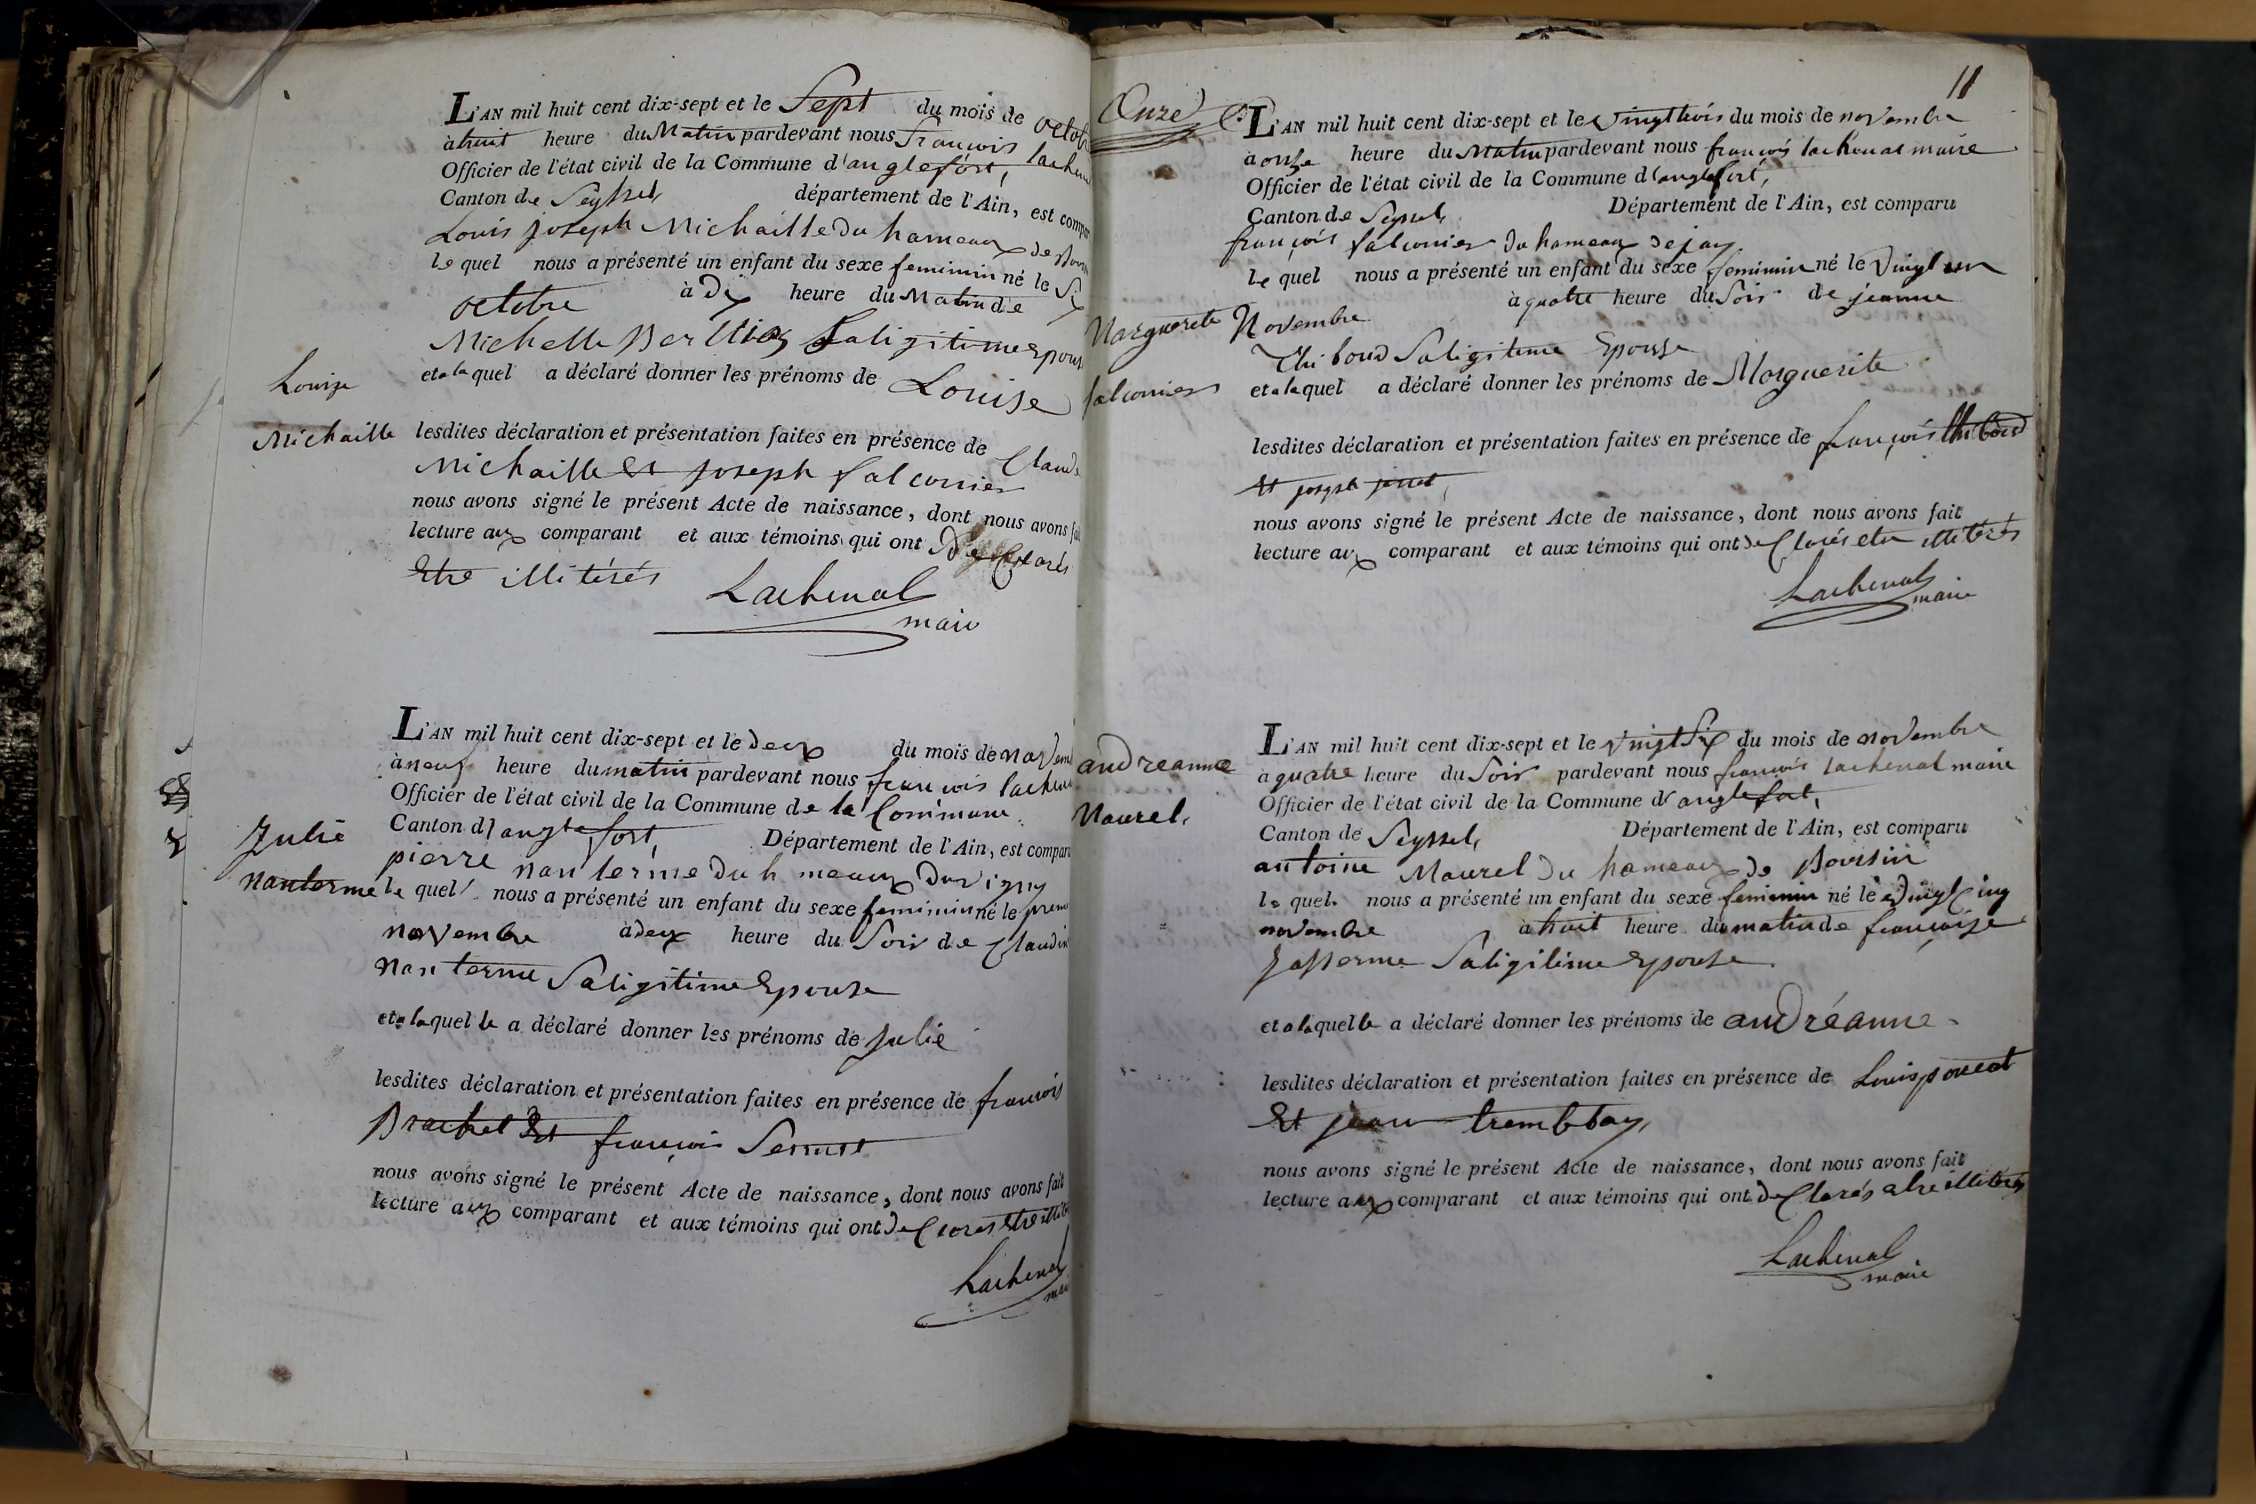 L'AN mil huit cent dix-sept et le Sept du mois de octob
à huit heure du Matin pardevant nous francois lachen
Officier de l'état civil de la Commune d'anglefort,
Canton de Seyssel, département de l'Ain, est compar
Louis joseph Michaille du hameaux de
le quel nous a présenté un enfant du sexe feminin né le Six
octobre à Dix heure du Matin de
Michelle Berlioz Saligitime Epous
et a la quel a déclaré donner les prénoms de Louise
Louise
Michaille
lesdites déclaration et présentation faites en présence de Claude
Michaille Et joseph falconnier
nous avons signé le présent Acte de naissance, dont nous avons fai
lecture aux comparant et aux témoins qui ont declarés
Etre illitérés
Lachenal
maire
L'AN mil huit cent dix-sept et le deux du mois de novem
à neuf heure du matin pardevant nous francois lachena
Officier de l'état civil de la Commune de la Commune
Canton d'anglefort, Département de l'Ain, est compar
pierre nanterme du h meaux
Julie
nanterme
le quel nous a présenté un enfant du sexe feminin né le prem
novembre à deux heure du Soir de Claudin
nanterme Saligitime Epouse
et a la quel le a déclaré donner les prénoms de julie
lesdites déclaration et présentation faites en présence de francois
Brachet Et francois
nous avons signé le présent Acte de naissance, dont nous avons fait
lecture aux comparant et aux témoins qui ont declarés Etre illité
Lachenal
mai
11
Onze
L'AN mil huit cent dix-sept et le vingt trois du mois de novembre
à onze heure du Matin pardevant nous francois lachenal maire
Officier de l'état civil de la Commune d'anglefort,
Canton de Seyssel, Département de l'Ain, est comparu
francois falconier du hameaux de jay
le quel nous a présenté un enfant du sexe feminin né le Vingt un
Novembre à quatre heure du Soir de jeanne
Marguerite
falconier
Thiboud Saligitime Epouse
et a la quel a déclaré donner les prénoms de Marguerite
lesdites déclaration et présentation faites en présence de francois thiboud
Et joseph
nous avons signé le présent Acte de naissance, dont nous avons fait
lecture aux comparant et aux témoins qui ont declarés etre illitérés
Lachenal
maire
L'AN mil huit cent dix-sept et le vingt Six du mois de novembre
à quatre heure du Soir pardevant nous francois lachenal maire
Officier de l'état civil de la Commune d'anglefort,
Canton de Seyssel, Département de l'Ain, est comparu
andreanne
Maurel,
antoine Maurel du hameaux de
le quel nous a présenté un enfant du sexe feminin né le vingt Cinq
novembre à huit heure du matin de francoise
Saligitime Epouse
et a la quelle a déclaré donner les prénoms de andréanne
lesdites déclaration et présentation faites en présence de Louis poncet
Et jean tremblay,
nous avons signé le présent Acte de naissance, dont nous avons fait
lecture aux comparant et aux témoins qui ont declarés etre illitérés
Lachenal
maire